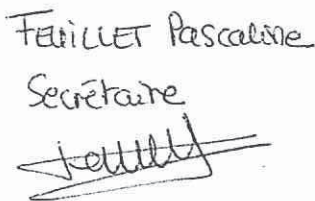 FEUILLET Pascaline
Secrétaire